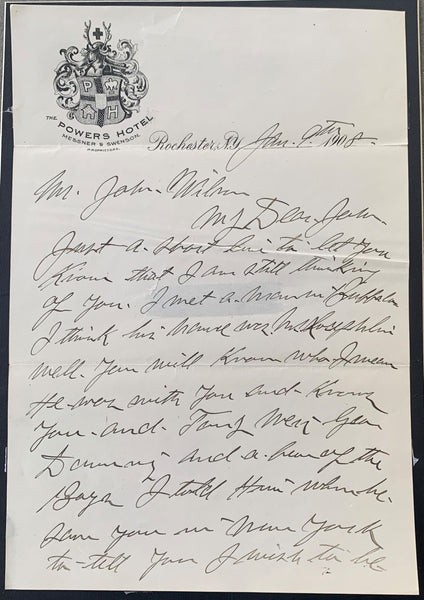 P H
THE
POWERS HOTEL
MESSNER & SWENSON
PROPRIETORS.
Rochester, N.Y. Jan. 9th 1908
Mr. John Wilson
My Dear John
Just a short line to let you
Know that I am still thinking
of you. I met a man in Buffalo
I think his name was McLoughlin
well. You will Know who I mean
He was with you and Know
you and Tony
and a few of the
Boys I told Him when he
saw you in New York
to tell you I wish to be